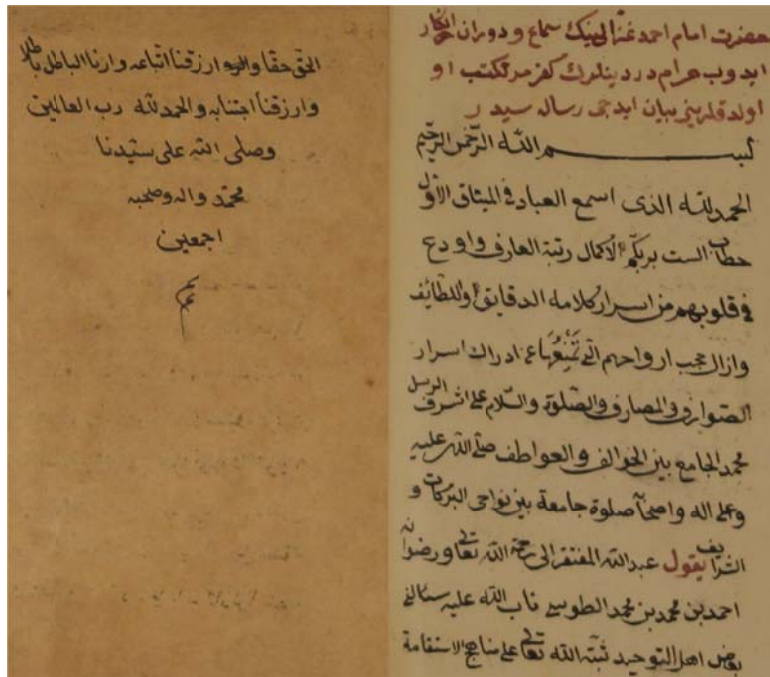 حضرت امام احمد غزالينيك سماع و دوران انكار
ايدوب حرام در دينلرك كفر مرتكب او
اولدقلريني بيان ايدجى رساله سيدر
بســـــم الله الرّحمن الرّحيم
الحمد لله الذى اسمع العباد فى الميثاق الأول
خطاب الست بربكم لاكمال رتبة العارف واودع
فى قلوبهم من اسرار كلامه الدقايق واللطائف
وازال حجب ارواحهم التى تمنعها عن ادراك اسرار
الصوارف والمصارف والصلوة والسّلام على اشرف الرسل
محمد الجامع بين الخوالف والعواطف صلى الله عليه
وعلى اله واصحا صلوة جامعة بين نواحى البركات و
الشرايف يقول عبد الله المفتقر الى رحمة الله تعالى ورضوانه
احمد بن محمد بن محمد الطوسى تاب الله عليه سئالنى
بعض اهل التوحيد ثبته الله تعالى على مناهج الاستقامة
الحق حقا وارزقنا اتباعه وارنا الباطل باطلا
وارزقنا اجتنابه والحمد لله رب العالمين
وصلى الله على سيّدنا
محمّد واله وصحبه
اجمعين